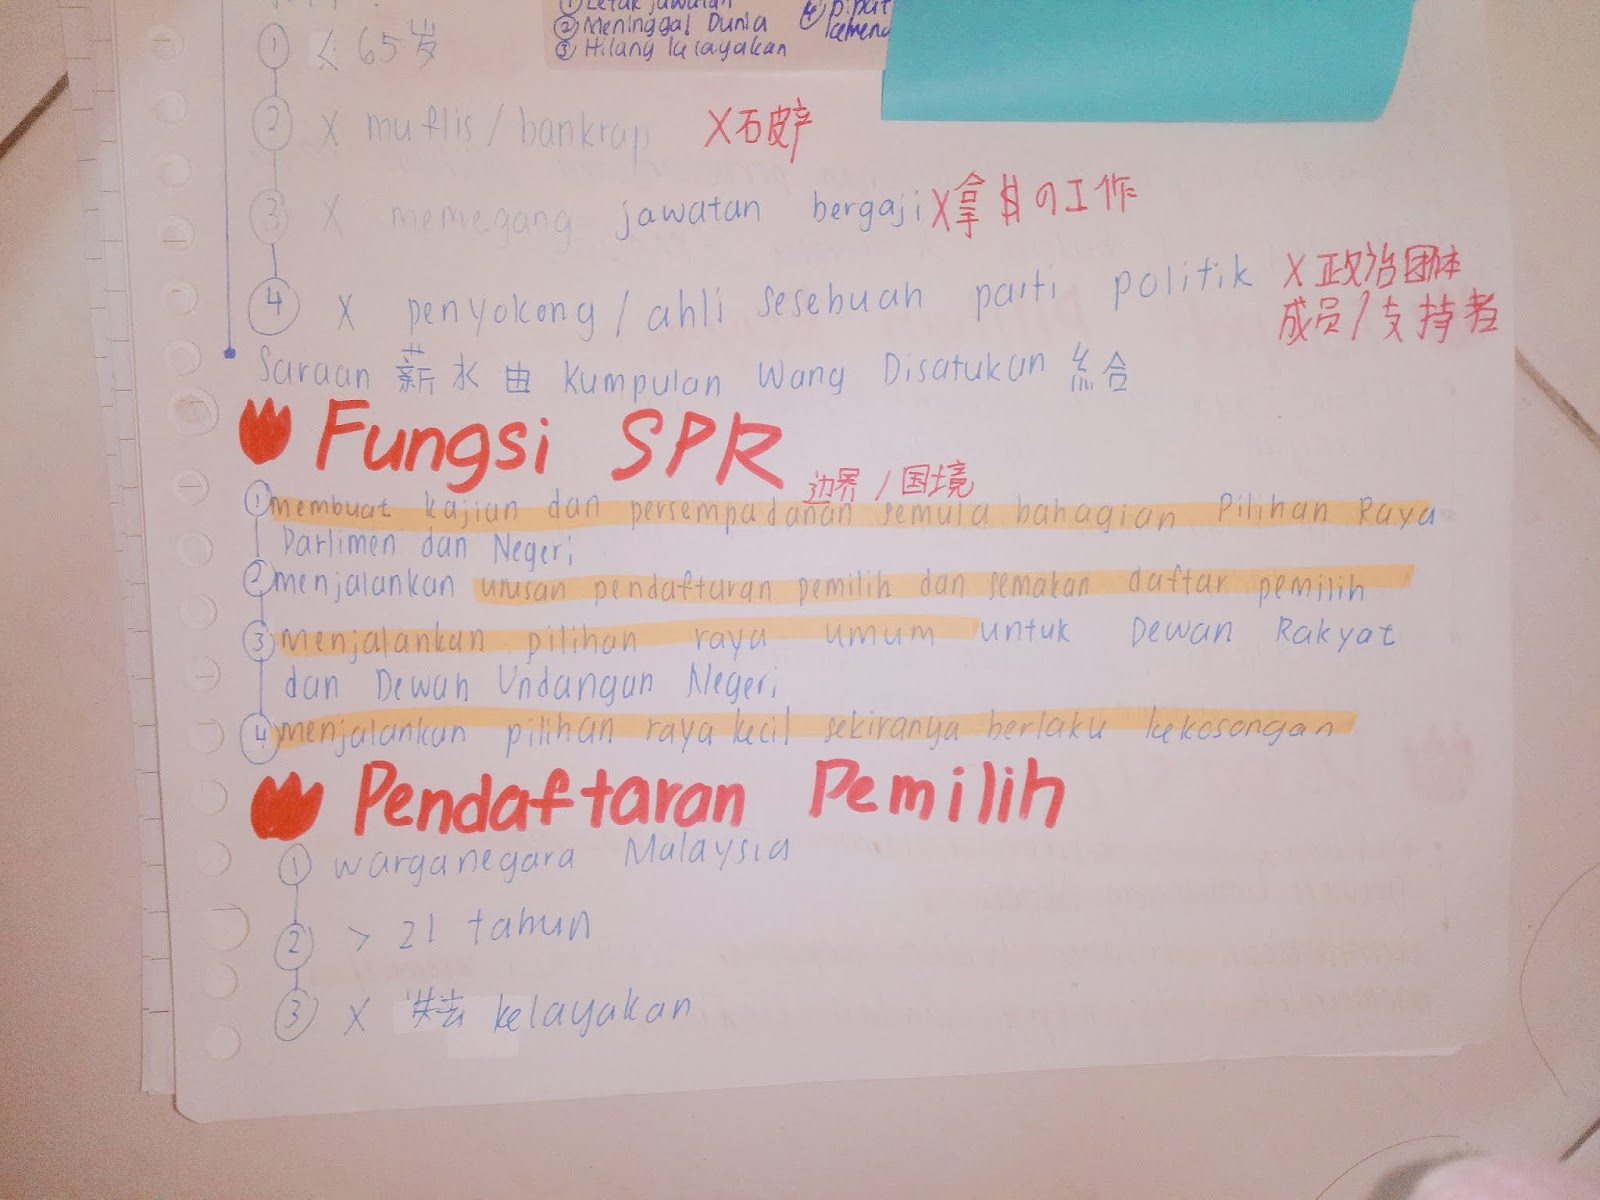 ① Letak jawatan
② Meninggal Dunia
③ Hilang kelayakan
④ Dipat
① < 65岁
② X muflis / bankrap X破产
③ X memegang jawatan bergaji X拿$の工作
④ X penyokong / ahli sesebuah parti politik X政治团体
成员/支持者
Saraan 薪水由 Kumpulan Wang Disatukan 結合
Fungsi SPR
边界 / 国境
① membuat kajian dan persempadanan semula bahagian Pilihan Raya
Parlimen dan Negeri
② menjalankan urusan pendaftaran pemilih dan semakan daftar pemilih
③ menjalankan pilihan raya umum untuk Dewan Rakyat
dan Dewan Undangan Negeri
④ menjalankan pilihan raya kecil sekiranya berlaku kekosongan
Pendaftaran Pemilih
① warganegara Malaysia
② > 21 tahun
③ X 失去 kelayakan